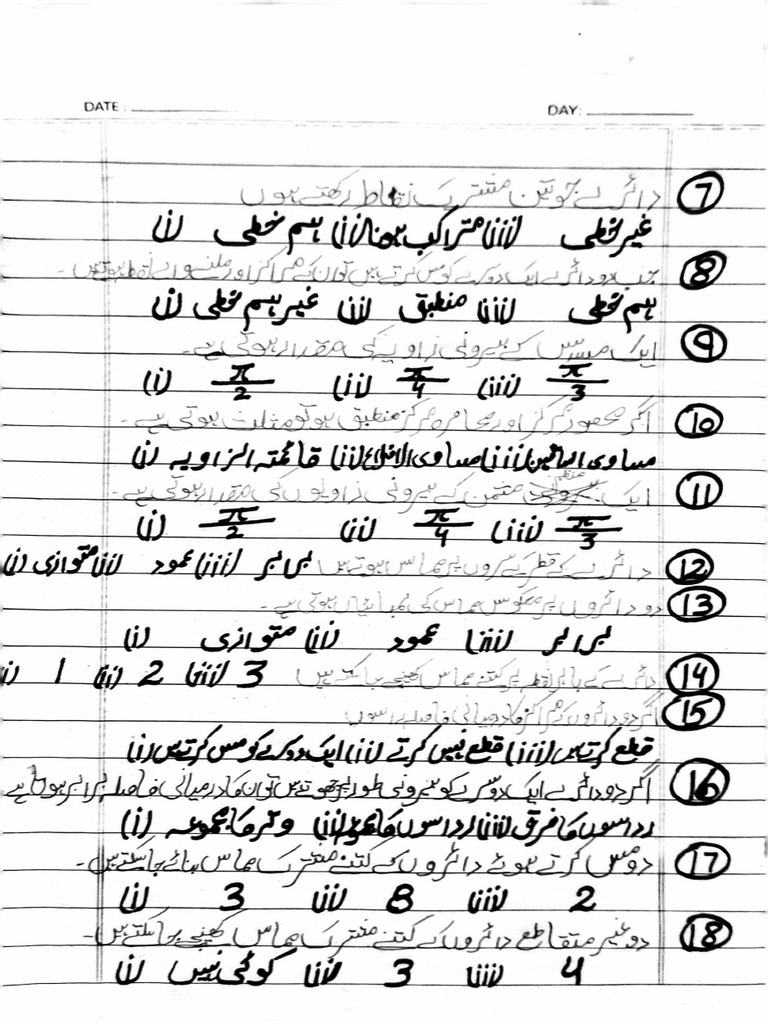 DATE: DAY:
7 دائرے جو تین مشترک نقاط رکھتے ہوں
غیر خطی (iii) متراکب ہونا (ii) ہم خطی (i)
8 جب دو دائرے ایک دوسرے کو مس کرتے ہیں تو ان کے مراکز اور ملنے والے نقط ہوتے ہیں۔
ہم خطی (iii) منطبق (ii) غیر ہم خطی (i)
9 ایک مسدس کے بیرونی زاویہ کی مقدار ہوتی ہے۔
π/3 (iii) π/4 (ii) π/2 (i)
10 اگر محصور مرکز اور محاصرہ مرکز منطبق ہو تو مثلث ہوتی ہے۔
مساوی الساقین (iii) مساوی الاضلاع (ii) قائمتہ الزاویہ (i)
11 ایک منظم مثمن کے بیرونی زاویوں کی مقدار ہوتی ہے۔
π/3 (iii) π/4 (ii) π/2 (i)
12 دائرے کے قطر کے سروں پر مماس ہوتے ہیں برابر (iii) عمود (ii) متوازی (i)
13 دو دائروں پر معکوس مماس کی لمبائیاں ہوتی ہے۔
برابر (iii) عمود (ii) متوازی (i)
14 دائرے کے باہر نقطہ پر کتنے مماس کھینچے جا سکتے ہیں 3 (iii) 2 (ii) 1 (i)
15 اگر دو دائروں کے مراکز کا درمیانی فاصلہ رداسوں
قطع کرتے ہیں (iii) قطع نہیں کرتے (ii) ایک دوسرے کو مس کرتے ہیں (i)
16 اگر دو دائرے ایک دوسرے کو بیرونی طور پر چھوتے ہیں تو ان کا درمیانی فاصلہ برابر ہوتا ہے
رداسوں کا فرق (iii) رداسوں کا مجموعہ (ii) وتر کا مجموعہ (i)
17 دو مس کرتے ہوئے دائروں کے کتنے مشترک مماس بنائے جا سکتے ہیں۔
2 (iii) 8 (ii) 3 (i)
18 دو غیر متقاطع دائروں کے کتنے مشترک مماس کھینچے جا سکتے ہیں۔
4 (iii) 3 (ii) کوئی نہیں (i)